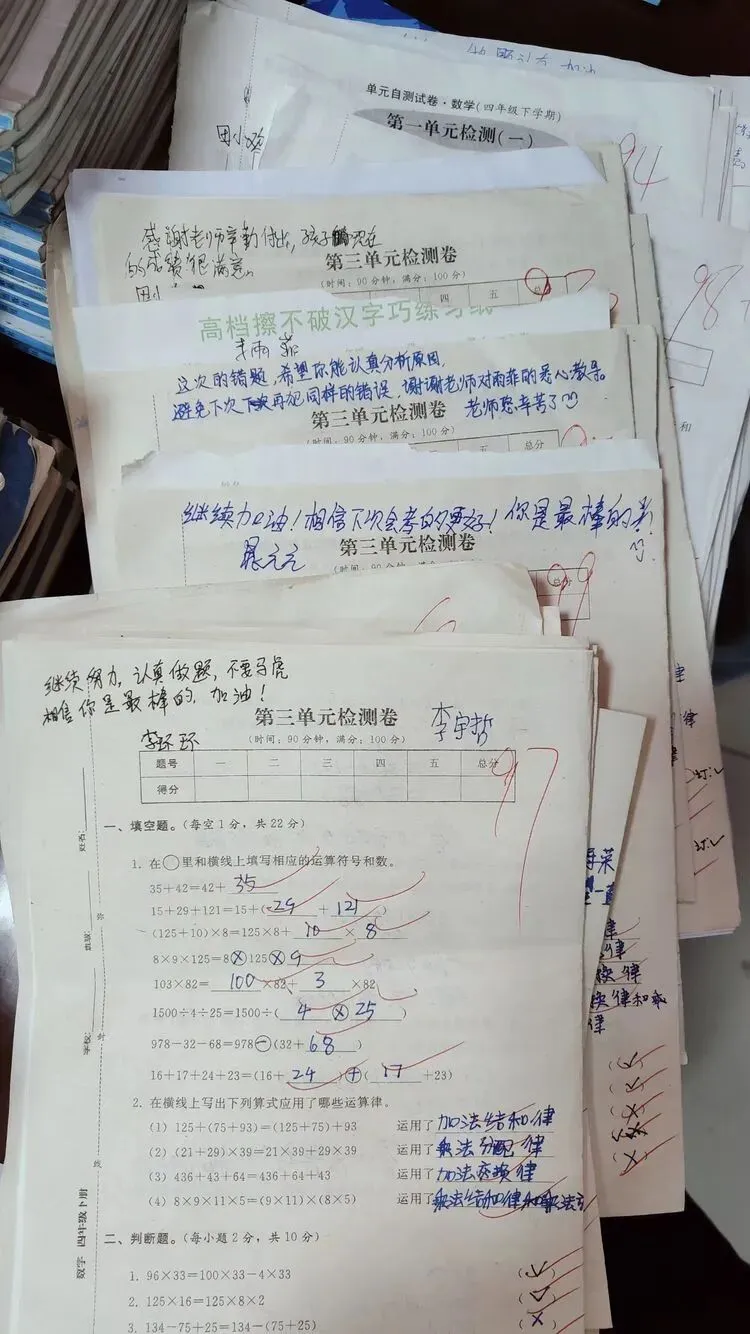 单元自测试卷·数学(四年级下学期)
第一单元检测(一)
94
感谢老师辛勤付出,孩子现在
的成绩很满意。
第三单元检测卷
(时间:90分钟,满分:100分)
四 五 总分
98
高档擦不破汉字巧练习纸
雨菲
这次的错题,希望你能认真分析原因,
避免下次再犯同样的错误,谢谢老师对雨菲的悉心教导。
老师您辛苦了
第三单元检测卷
(时间:90分钟,满分:100分)
五 总分
继续加油!相信下次会考的更好!你是最棒的
第三单元检测卷
(时间:90分钟,满
总分
99
继续努力,认真做题,不要马虎
相信你是最棒的,加油!
第三单元检测卷
李宇哲
李环环
(时间:90分钟,满分:100分)
97
题号 一 二 三 四 五 总分
得分
一、填空题。(每空1分,共22分)
1. 在○里和横线上填写相应的运算符号和数。
35+42=42+35
15+29+121=15+(29+121)
(125+10)×8=125×8+10×8
8×9×125=8×125×9
103×82=100×82+3×82
1500÷4÷25=1500÷(4×25)
978-32-68=978-(32+68)
16+17+24+23=(16+24)+(17+23)
2. 在横线上写出下列算式应用了哪些运算律。
(1) 125+(75+93)=(125+75)+93 运用了加法结和律
(2) (21+29)×39=21×39+29×39 运用了乘法分配律
(3) 436+43+64=436+64+43 运用了加法交换律
(4) 8×9×11×5=(9×11)×(8×5) 运用了乘法结和律和乘法
二、判断题。(每小题2分,共10分)
1. 96×33=100×33-4×33
2. 125×16=125×8×2
3. 134-75+25=134-(75+25) (×)
姓名:
班级:
学校:
弥
封
线
数学 四年级下册